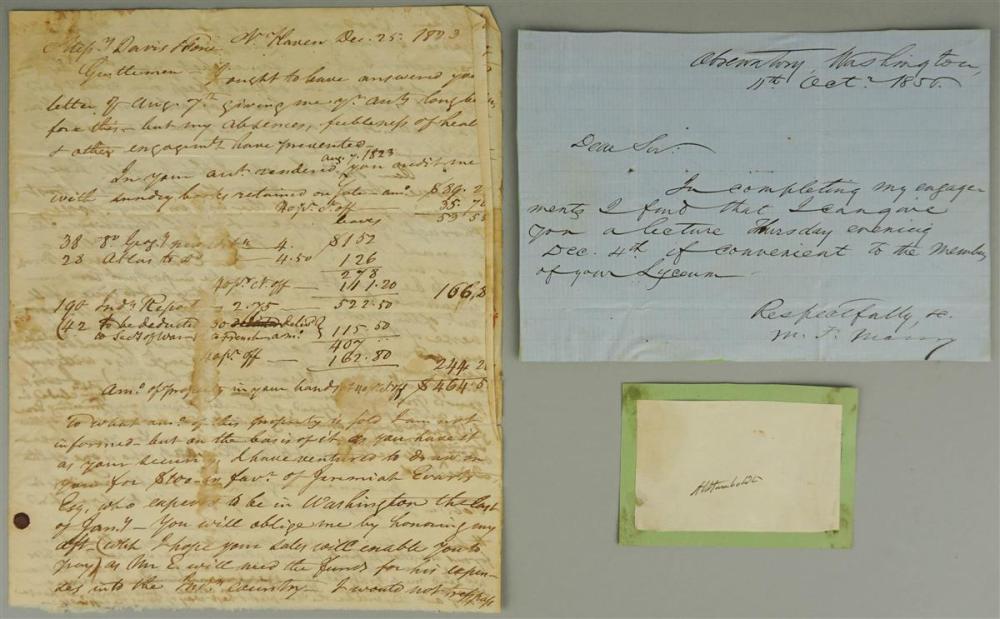 Mess.rs Davis & Force N. Haven Dec. 25. 1823
Gentlemen — I ought to have answered your
letter of Aug. 7th giving me yr. acct. long be
fore this — but my absences, feebleness of heal
& other engagemts have prevented —
In your acct. rendered Aug. 7. 1823 you credit me
with sundry books retained on sale — amt. $89.2
40 pr. ct. off 35.70
leaves 53.55
38 8o Geogy 4. $152
28 Atlas to do 4.50 126
278
40 pr. ct. off — 111.20 166,8
190 Indn Report — 2.75 522.50
(42 to be deducted 30 delivd
to Secy of War & 115.50
407
40 pr. off — 162.80 244.2
Amt. of property in your hands 40 pr ct off $464.5
To what amt. of this property is sold I am not
informed — but on the basis of it as you have it
as your security I have ventured to draw on
you for $100 in favr. of Jeremiah Evarts
Esq. who expects to be in Washington the last
of Jany — You will oblige me by honoring my
dft — (wch I hope your sales will enable you to
pay) as Mr E. will need the funds for his expen
ses into the Indn country — I would not
Observatory, Washington,
11th Oct. 1850.
Dear Sir:
In completing my engage
ments I find that I can give
you a lecture Thursday evening
Dec. 4th if convenient to the members
of your Lyceum —
Respectfully, &c.
M. F. Maury
AvHumboldt